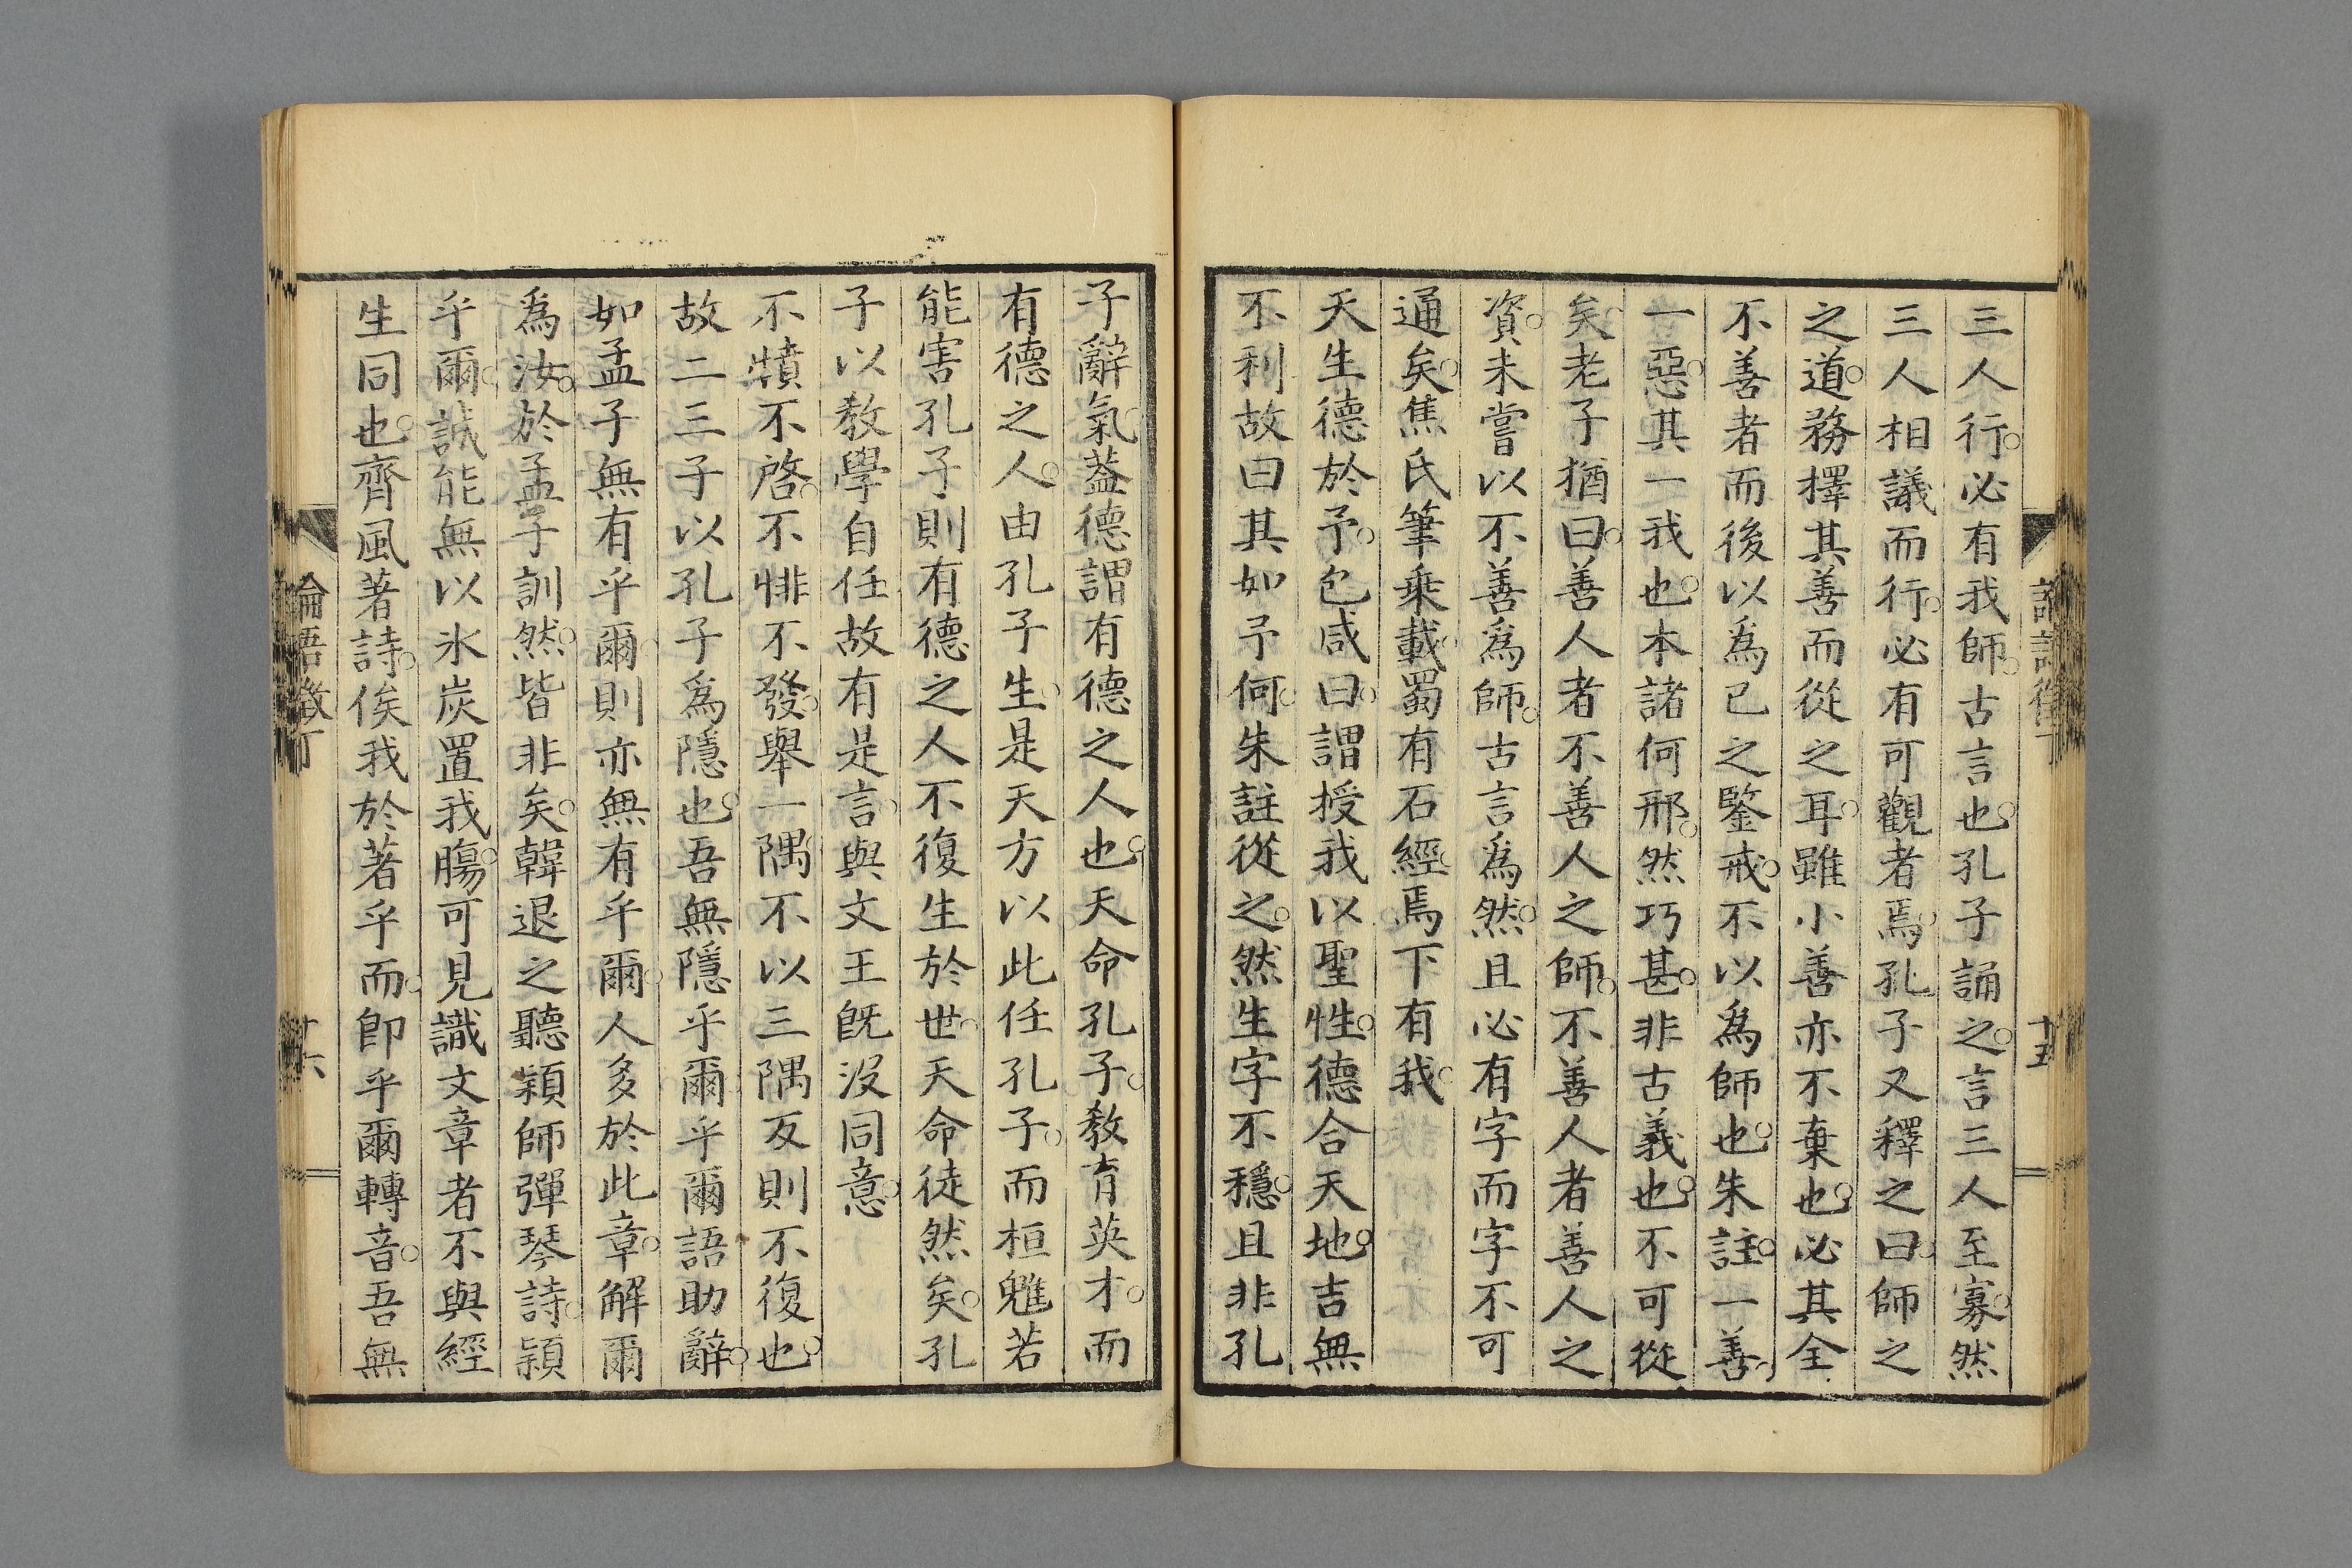 三人行必有我師古言也孔子誦之言三人至寡然
三人相議而行必有可觀者焉孔子又釋之曰師之
之道務擇其善而從之耳雖小善亦不棄也必其全
不善者而後以爲己之鑒戒不以爲師也朱註一善
一惡其一我也本諸何邢然巧甚非古義也不可從
矣老子猶曰善人者不善人之師不善人者善人之
資未嘗以不善爲師古言爲然且必有字而字不可
通矣焦氏筆乗載蜀有石經焉下有我
天生德於予包咸曰謂授我以聖性德合天地吉無
不利故曰其如予何朱註從之然生字不穩且非孔
子辭氣蓋德謂有德之人也天命孔子教育英才而
有德之人由孔子生是天方以此任孔子而桓魋若
能害孔子則有德之人不復生於世天命徒然矣孔
子以教學自任故有是言與文王旣沒同意
不憤不啓不悱不發舉一隅不以三隅反則不復也
故二三子以孔子爲隱也吾無隱乎爾乎爾語助辭
如孟子無有乎爾則亦無有乎爾人多於此章解爾
爲汝於孟子訓然皆非矣韓退之聽穎師彈琴詩穎
乎爾誠能無以氷炭置我腸可見識文章者不與經
生同也齊風著詩俟我於著乎而即乎爾轉音吾無
論語徵丁
十六
十五